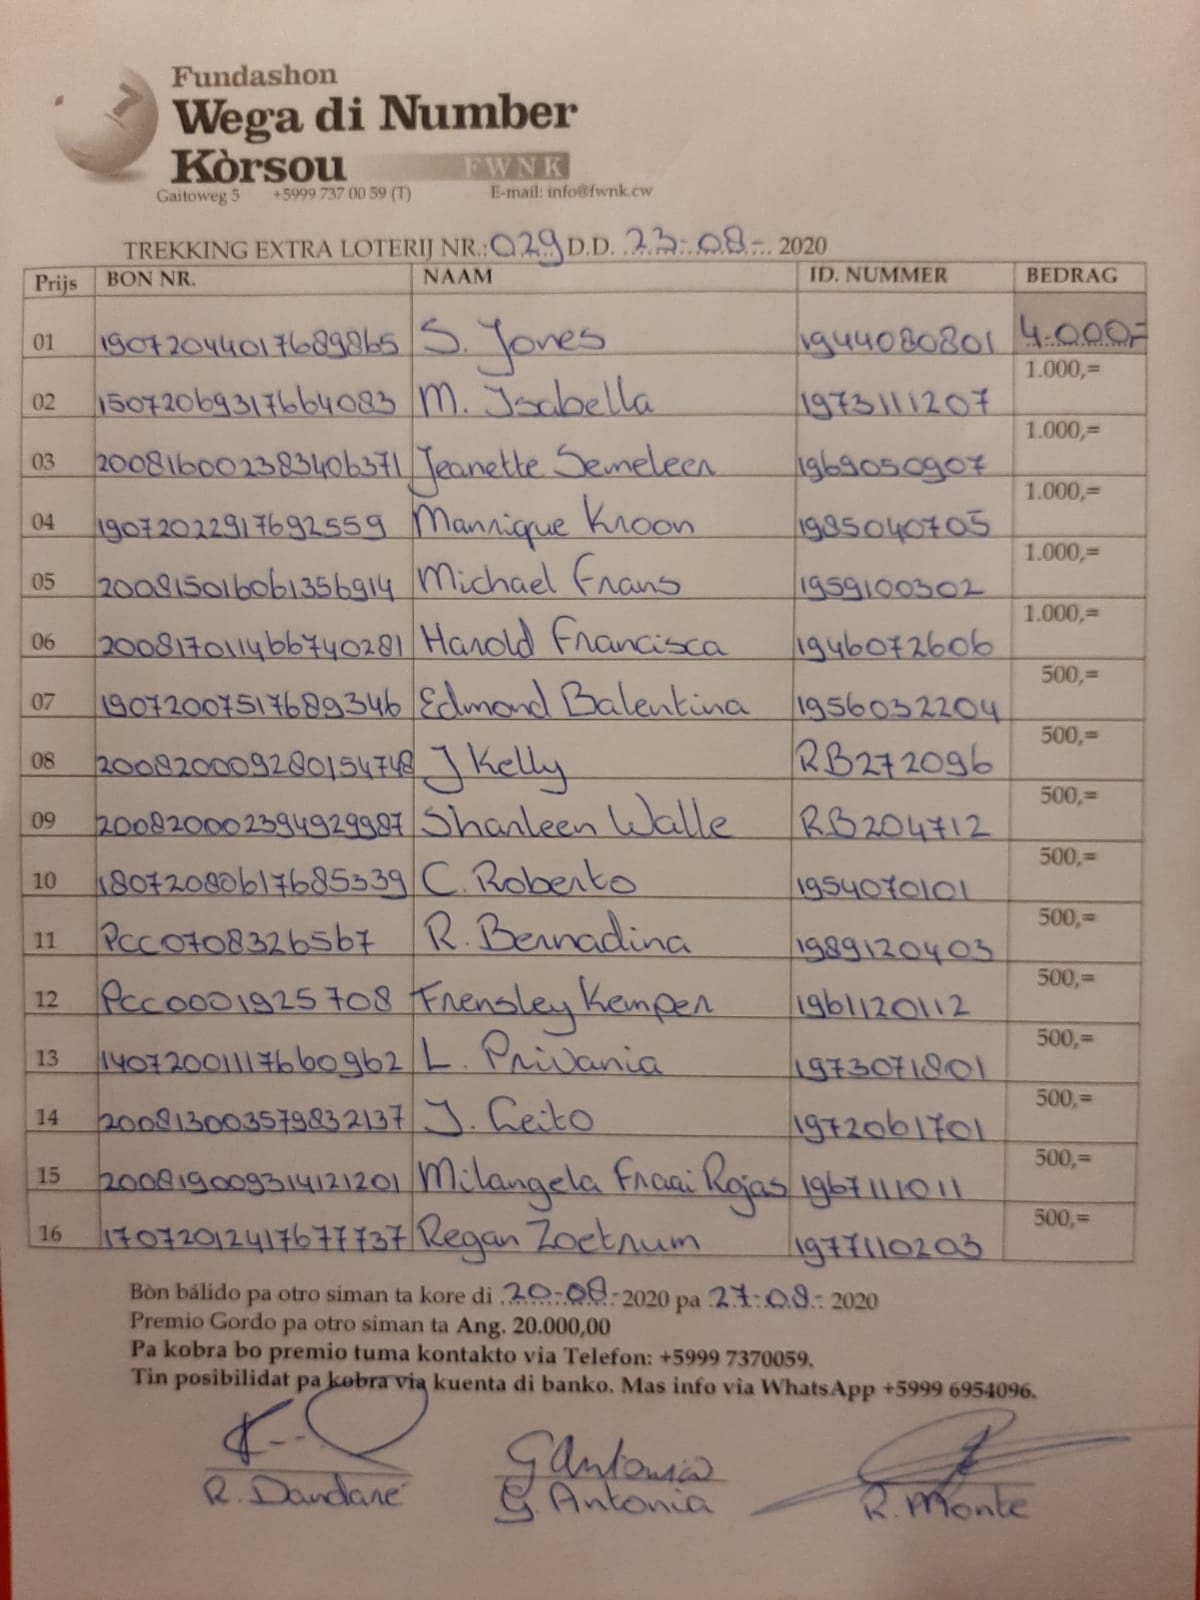 Fundashon
Wega di Number
Kòrsou FWNK
Gaitoweg 5 +5999 737 00 59 (T) E-mail: info@fwnk.cw
TREKKING EXTRA LOTERIJ NR.: 029 D.D. 23-08- 2020
Prijs BON NR. NAAM ID. NUMMER BEDRAG
01 19072044017689865 S. Jones 1944080801 4.000,-
02 15072069317664083 M. Isabella 1973111207 1.000,=
03 200816002383406371 Jeanette Semeleer 1969050907 1.000,=
04 19072022917692559 Manrique Kroon 1985040705 1.000,=
05 200815016061356914 Michael Frans 1959100302 1.000,=
06 200817011466740281 Harold Francisca 1946072606 1.000,=
07 19072007517689346 Edmond Balentina 1956032204 500,=
08 200820009280154748 J Kelly RB272096 500,=
09 200820002394929987 Sharleen Walle RB204712 500,=
10 18072080617685339 C. Roberto 1954070101 500,=
11 PCC0708326567 R. Bernadina 1989120403 500,=
12 PCC0001925708 Frensley Kemper 1961120112 500,=
13 14072001117660962 L. Privania 1973071801 500,=
14 200813003579832137 J. Ceito 1972061701 500,=
15 200819009314121201 Milangela Fraai Rojas 1967111011 500,=
16 17072012417677737 Regan Zoetrum 1977110203 500,=
Bòn bálido pa otro siman ta kore di 20-08-2020 pa 27-08- 2020
Premio Gordo pa otro siman ta Ang. 20.000,00
Pa kobra bo premio tuma kontakto via Telefon: +5999 7370059.
Tin posibilidat pa kobra via kuenta di banko. Mas info via WhatsApp +5999 6954096.
GAntonia
R. Dandaré G. Antonia R. Monte